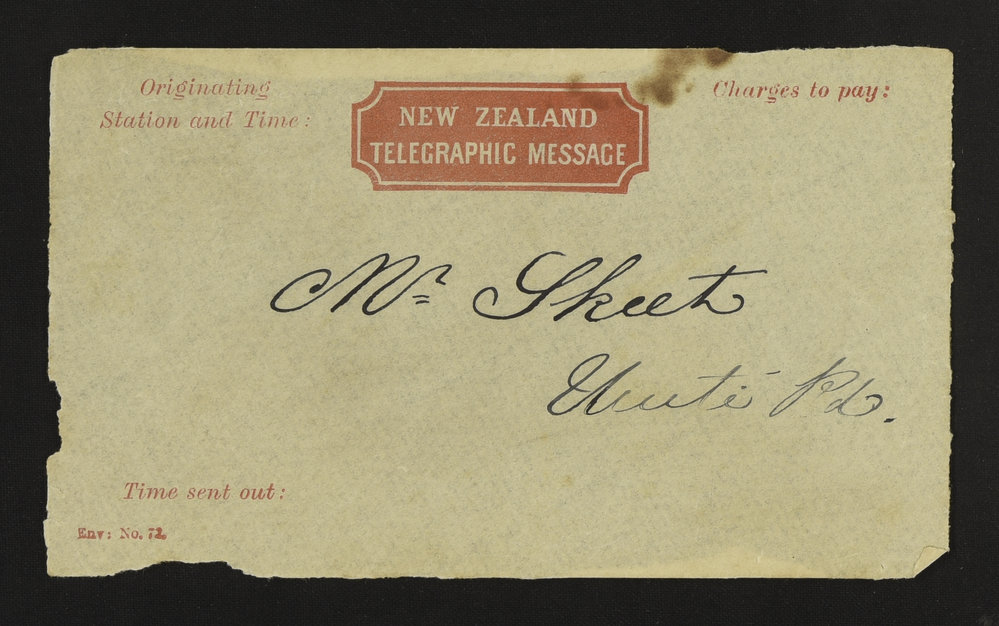 Originating
Station and Time:
NEW ZEALAND
TELEGRAPHIC MESSAGE
Charges to pay:
Mr Skeet
Rd.
Time sent out:
Env: No. 71.